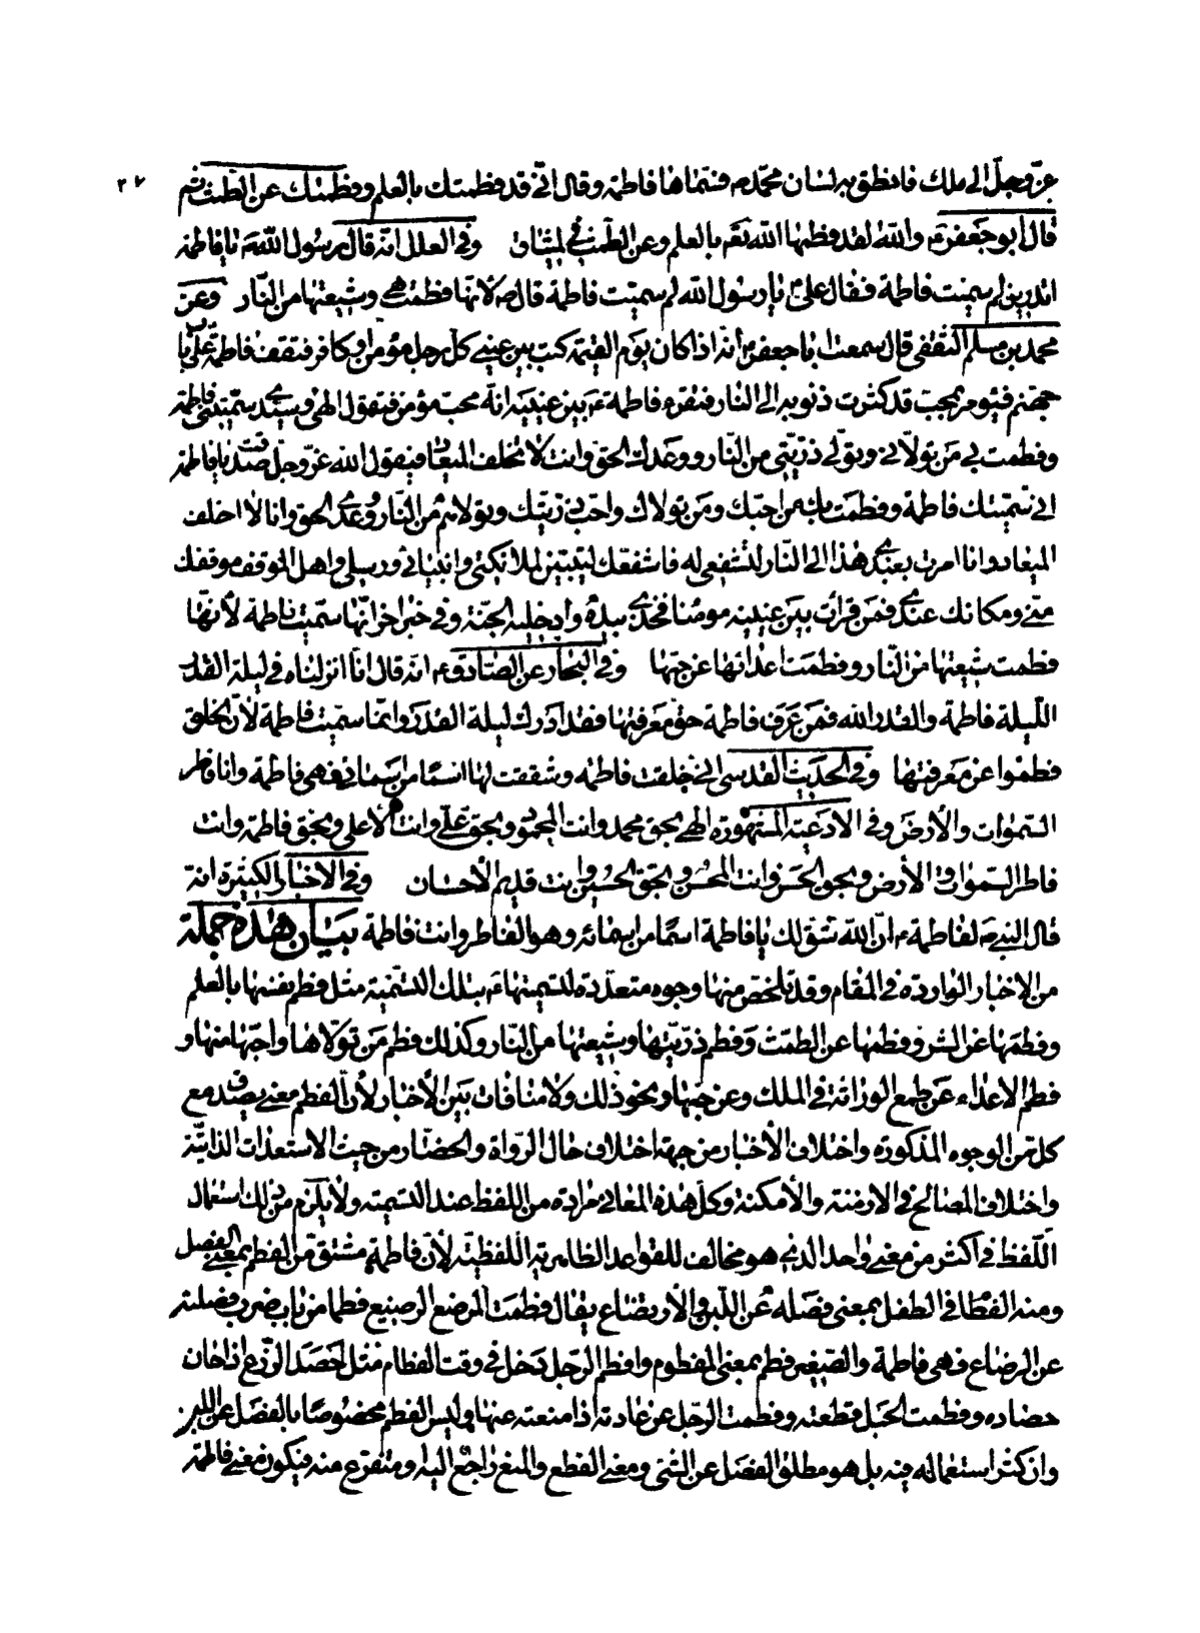 عزّ وجلّ الى ملك فانطق به لسان محمّد ص فسمّاها فاطمة وقال انّى قد فطمتك بالعلم وفطمتك عن الطمث ثم ٢٧
قال ابو جعفر ع والله لقد فطمها الله تعم بالعلم وعن الطمث فى الميثاق وفى العلل انّه قال رسول الله ص يا فاطمة
اتدرين لم سميت فاطمة فقال علىّ ع يا رسول الله لم سميت فاطمة قال ص لانّها فطمت هى وشيعتها من النّار وعن
محمد بن مسلم الثقفى قال سمعت ابا جعفر ع انّه اذا كان يوم القيمة كتب بين عينى كل رجل مؤمن او كافر فتقف فاطمة ع على باب
جهنم فيؤمر بمحبّ قد كثرت ذنوبه الى النار فتقرء فاطمة ع بين عينيه انّه محبّ مؤمن فتقول الهى وسيّدى سمّيتنى فاطمة
وفطمت بى من تولّانى وتولّى ذرّيّتى من النّار ووعدك الحق وانت لا تخلف الميعاد فيقول الله عزّ وجل صدقت يا فاطمة
انى سمّيتك فاطمة وفطمت بك من احبّك ومن تولاك واحبّ ذرّيّتك وتولّاهم من النّار ووعدى الحق وانا لا اخلف
الميعاد وانا امرت بعبدى هذا الى النّار لتشفعى له فاشفعك ليتبيّن لملائكتى وانبيائى ورسلى واهل الموقف موقفك
منّى ومكانك عندى فمن قرأت بين عينيه مومنا فخذى بيده وادخليه الجنّة وفى خبر اخر انّها سميت فاطمة لأنّها
فطمت شيعتها من النّار وفطمت اعدائها عن حبّها وفى البحار عن الصّادق ع انّه قال انّا انزلناه فى ليلة القدر
اللّيلة فاطمة والقدر الله فمن عرف فاطمة حق معرفتها فقد ادرك ليلة القدر وانّما سمّيت فاطمة لأنّ الخلق
فطموا عن معرفتها وفى الحديث القدسى انى خلقت فاطمة وشققت لها اسمًا من اسمائى فهى فاطمة وانا فاطر
السّموات والأرض وفى الادعية المشهورة الهى بحق محمد وانت المحمود وبحق علىّ وانت الأعلى وبحق فاطمة وانت
فاطر السّموات والأرض وبحق الحسن وانت المحسن وبحق الحسين وانت قديم الأحسان وفى الاخبار الكثيرة انه
قال النبى ص لفاطمة ع انّ الله شق لك يا فاطمة اسمًا من اسمائه وهو الفاطر وانت فاطمة بيان هذه جملة
من الاخبار الواردة فى المقام وقد تلخص منها وجوه متعدّدة لتسميتها ع بتلك التسمية مثل فطم نفسها بالعلم
وفطمها عن الشر وفطمها عن الطمث وفطم ذرّيّتها وشيعتها من النّار وكذلك فطم من تولّاها واحبّها منها و
فطم الاعداء عن طمع الوراثة فى الملك وعن حبّها ونحو ذلك ولا منافات بين الأخبار لأنّ الفطم معنى يصدق مع
كل من الوجوه المذكورة واختلاف الأخبار من جهة اختلاف حال الرّواة والحضّار من حيث الاستعدادات الذاتيّة
واختلاف المصالح فى الازمنة والأمكنة وكلّ هذه المعانى مرادة من اللفظ عند التسمية ولا يلزم من ذلك استعمال
اللّفظ فى اكثر من معنى واحد الذى هو مخالف للقواعد الظاهرية اللّفظيّة لأنّ فاطمة مشتق من الفطم بمعنى الفصل
ومنه الفطام فى الطفل بمعنى فصله عن اللّبن والأرتضاع يقال فطمت المرضع الرضيع فطما من باب ضرب فصلته
عن الرضاع فهى فاطمة والصّغير فطيم بمعنى المفطوم وافطم الرّجل دخل فى وقت الفطام مثل احصد الزّرع اذا حان
حصاده وفطمت الحبل قطعته وفطمت الرجل عن عادته اذا منعته عنها وليس الفطم مخصوصًا بالفصل عن اللبن
وان كثر استعماله فيه بل هو مطلق الفصل عن الشئ ومعنى القطع والمنع راجع اليه ومتفرع منه فيكون معنى فاطمة